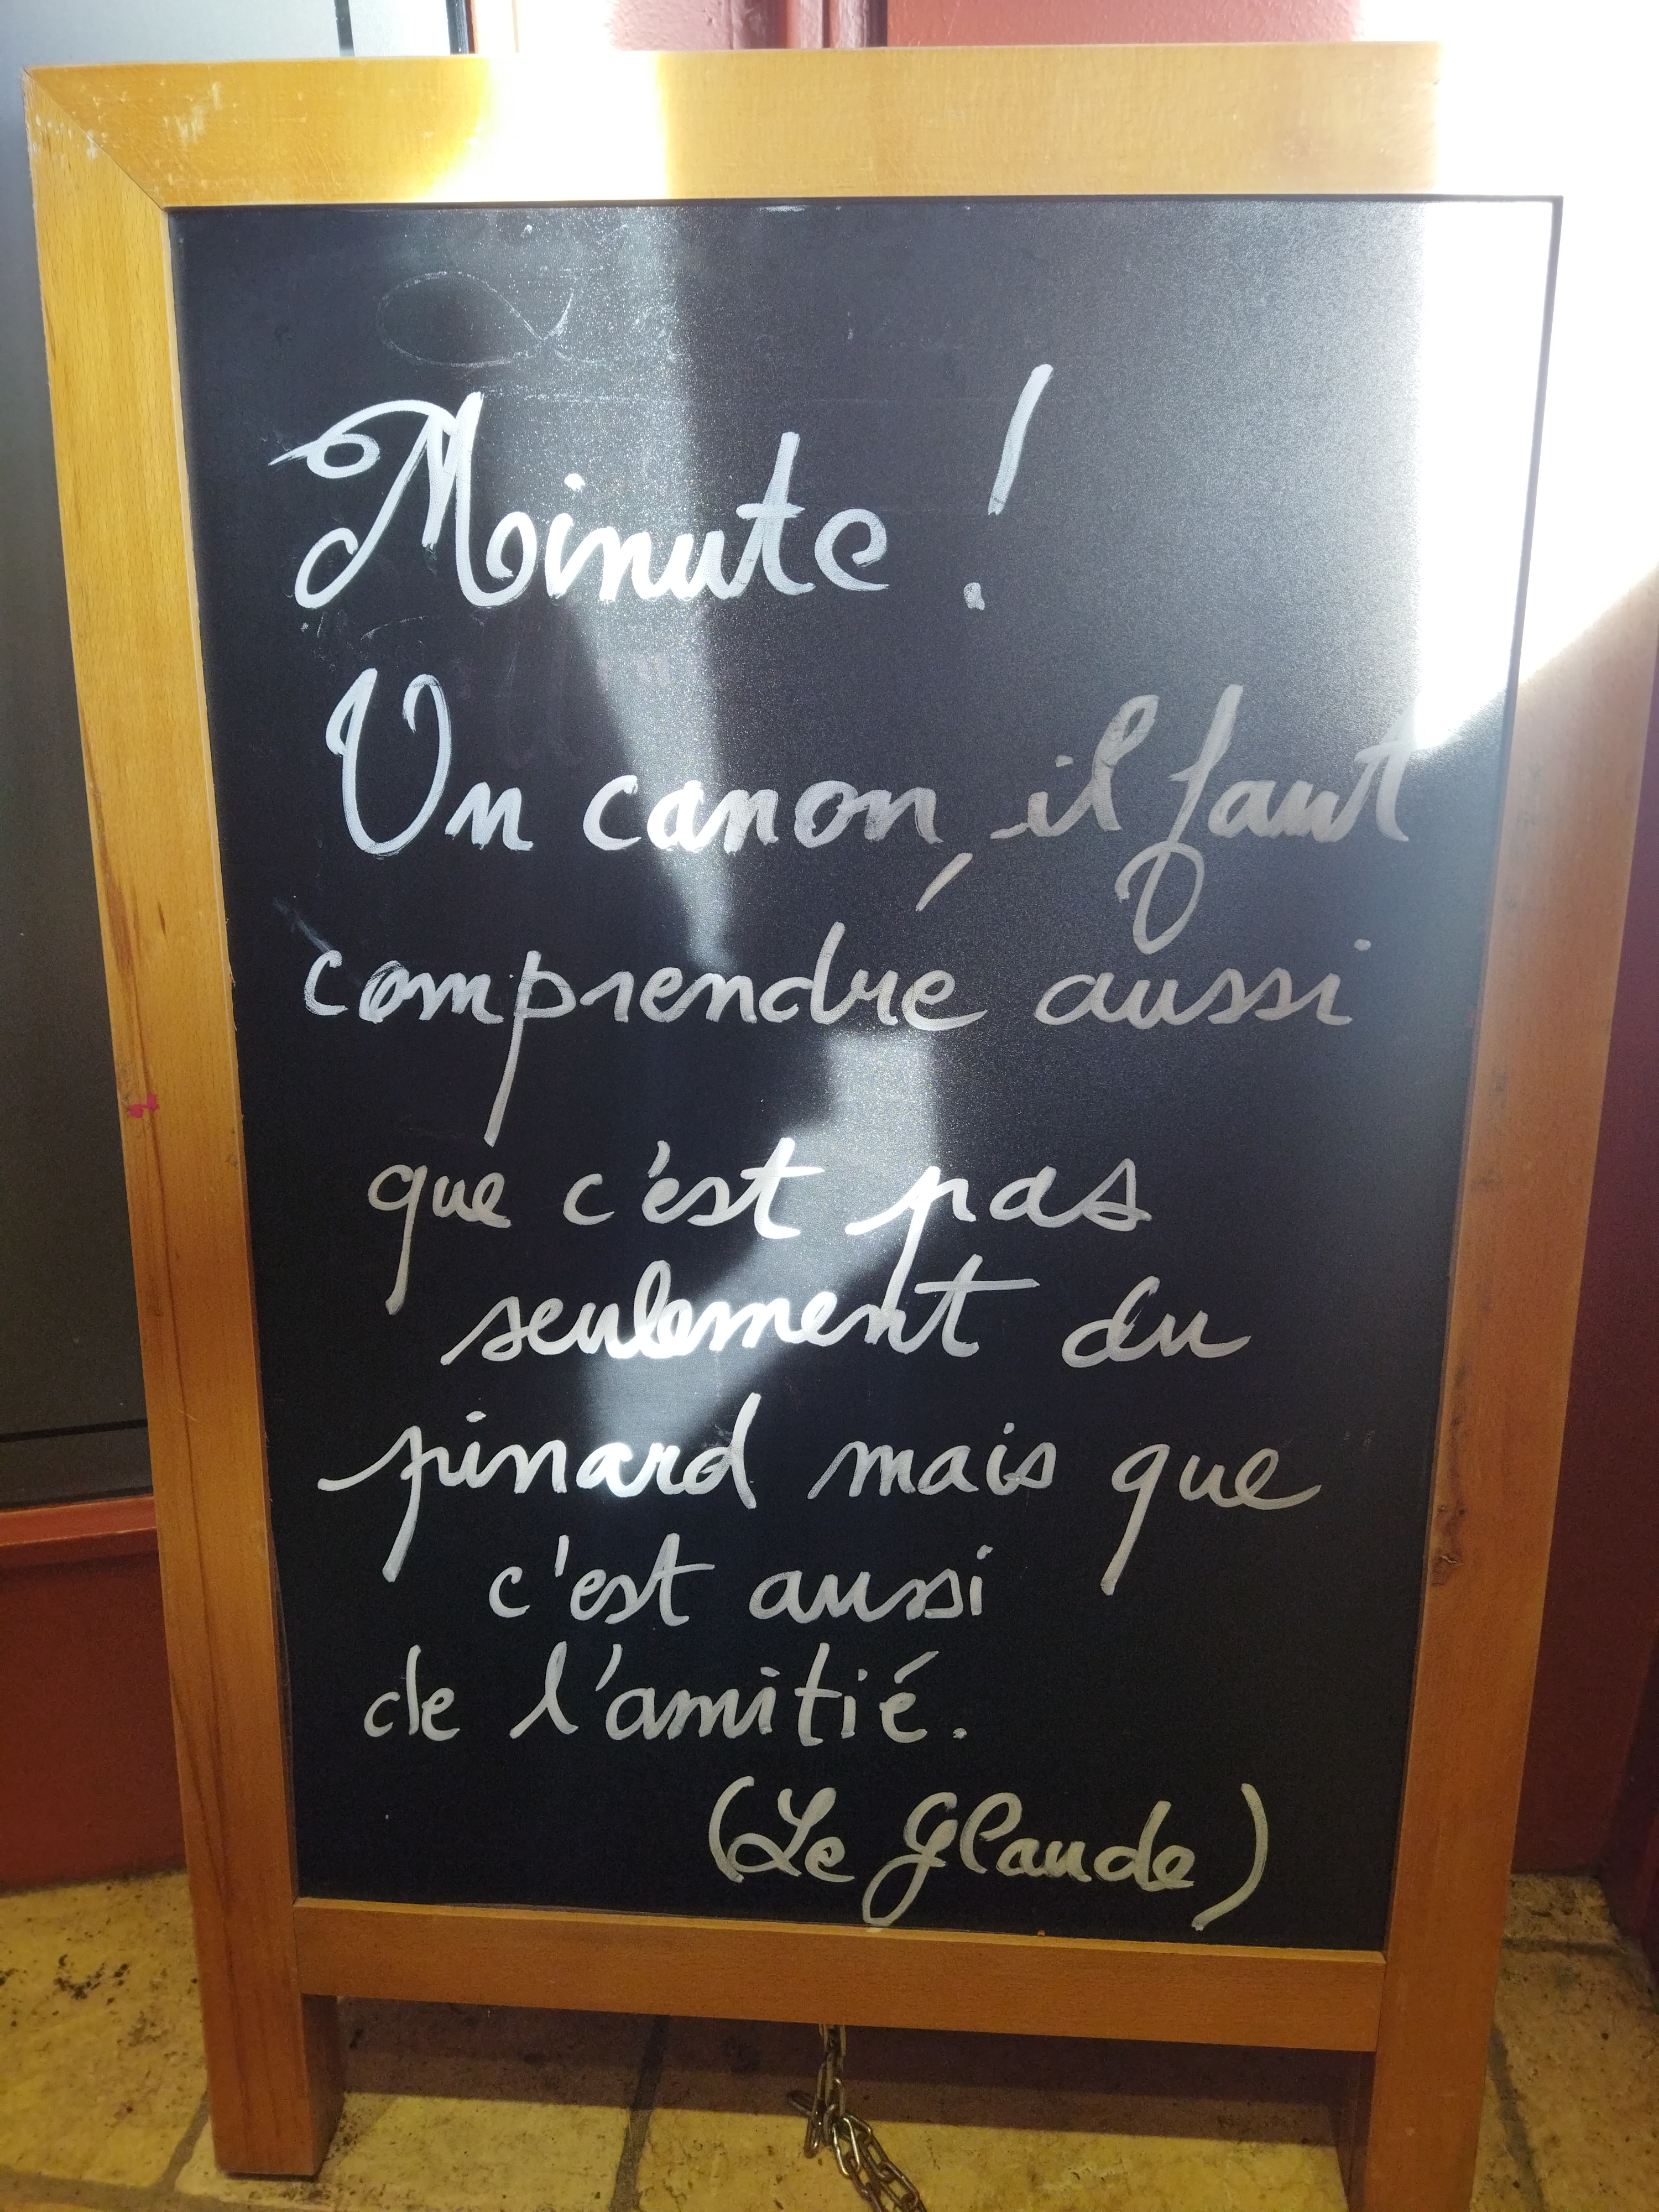 Minute !
Un canon, il faut
comprendre aussi
que c'est pas
seulement du
pinard mais que
c'est aussi
de l'amitié.
(Le Glaude)